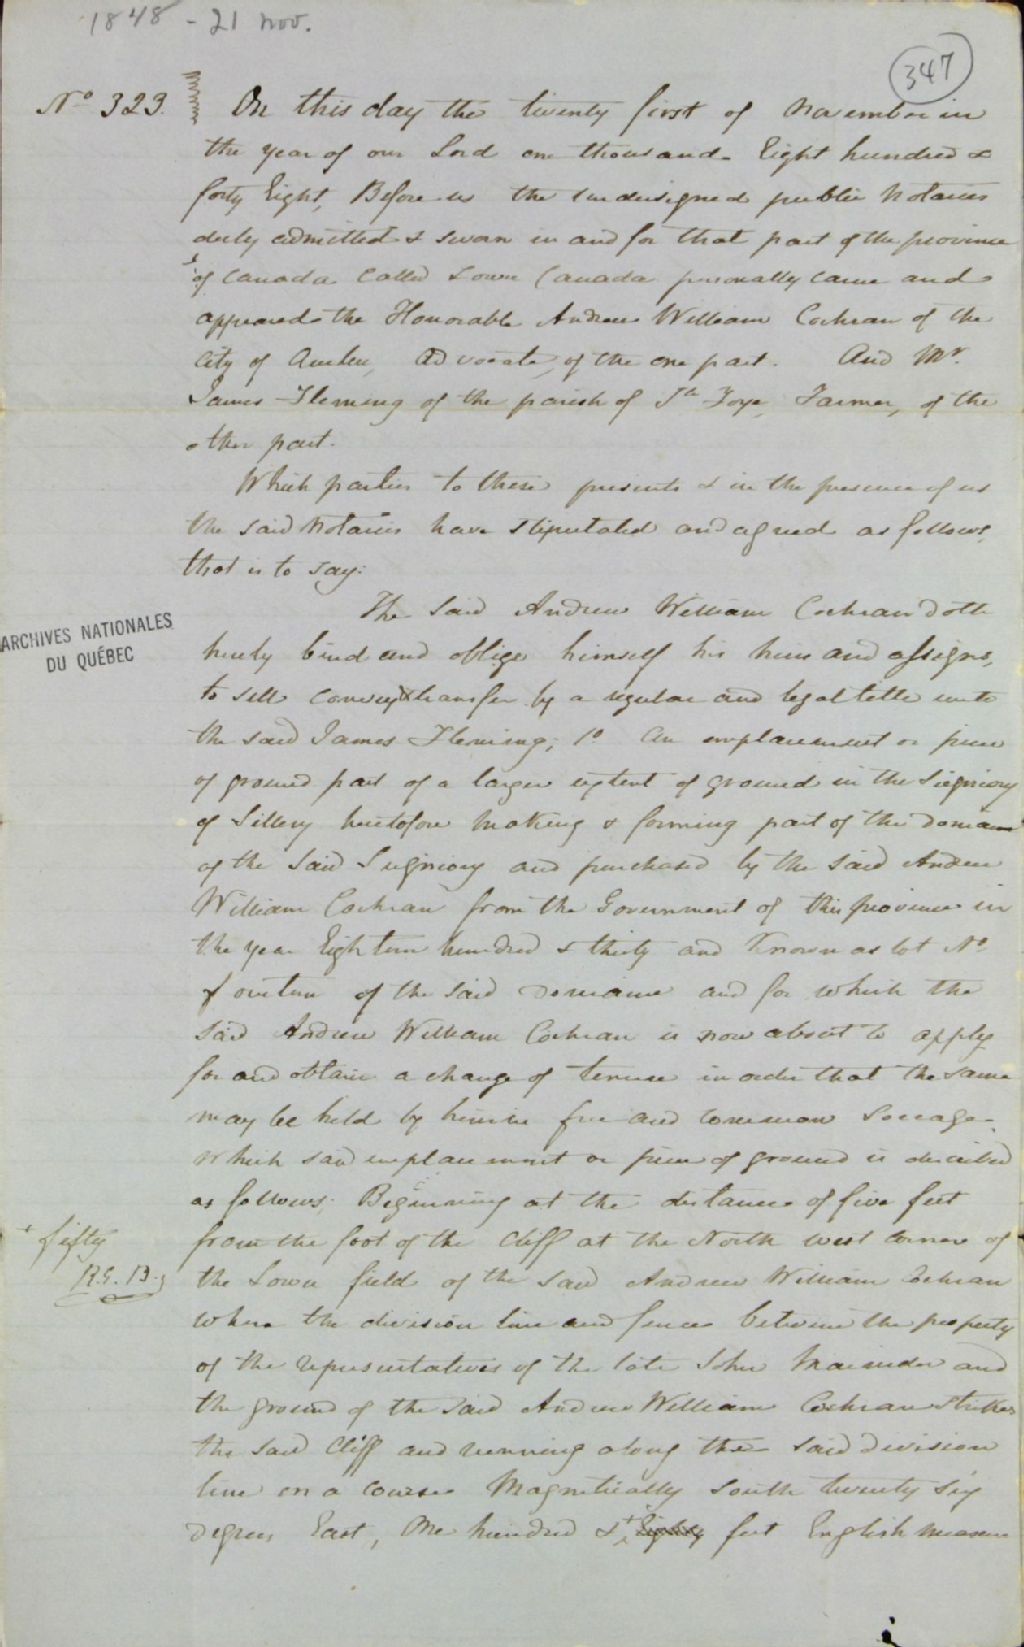 1848 - 21 nov.
347
No 323. On this day the twenty first of November in
the year of our Lord one thousand Eight hundred &
forty Eight, Before us the undersigned public Notaries
duly admitted & sworn in and for that part of the province
of Canada called Lower Canada personally came and
appeared the Honorable Andrew William Cochran of the
City of Quebec, Advocate, of the one part. And Mr.
James Fleming of the parish of St Foye, Farmer, of the
other part.
Which parties to these presents & in the presence of us
the said Notaries have stipulated and agreed as follows,
that is to say:
The said Andrew William Cochran doth
hereby bind and oblige himself his heirs and assigns,
to sell convey & transfer by a regular and legal title unto
the said James Fleming; 1o An emplacement or piece
of ground part of a larger extent of ground in the Seigniory
of Sillery heretofore making & forming part of the domain
of the said Seigniory and purchased by the said Andrew
William Cochran from the Government of this province in
the year Eighteen hundred & thirty and known as lot No
fourteen of the said Domaine and for which the
said Andrew William Cochran is now about to apply
for and obtain a change of tenure in order that the same
may be held by him in free and common soccage -
which said emplacement or piece of ground is described
as follows; Beginning at the distance of five feet
from the foot of the Cliff at the North west corner of
the Lower field of the said Andrew William Cochran
where the division line and fence between the property
of the representatives of the late John and
the ground of the said Andrew William Cochran strikes
the said Cliff and running along the said division
line on a course Magnetically South twenty six
degrees East, One hundred & + feet English measure
+ fifty
R.G.B.
ARCHIVES NATIONALES
DU QUÉBEC